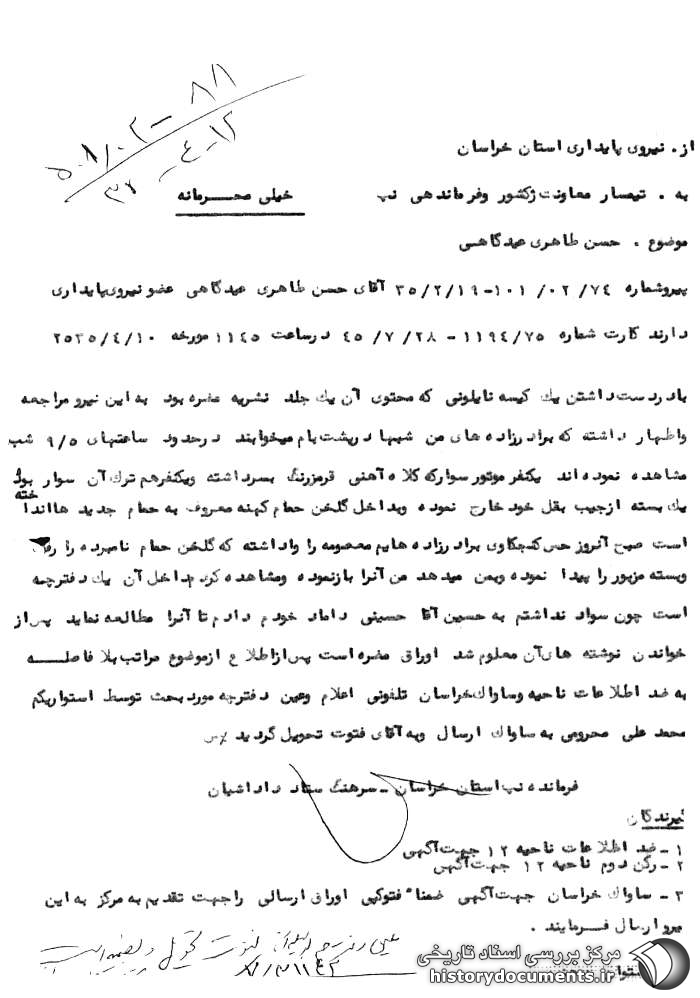 ۵۰۸/۰۲ - ۸۸
۱۲-۴-
۳۶
از . نیروی پایداری استان خراسان
به . تیمسار معاونت ژکشور وفرماندهی نپ
خیلی محرمانه
موضوع . حسن طاهری عیدگاهی
پیروشماره ۷۴/ ۰۲/ ۱۰۱-۳۵/۲/۱۹ آقای حسن طاهری عیدگاهی عضو نیروی‌پایداری
دارنده کارت شماره ۱۱۹۴/۷۵ - ۲۸/ ۷/ ۴۵ درساعت ۱۱۴۵ مورخه ۲۵۳۵/۴/۱۰
بادردست‌داشتن یک کیسه نایلونی که محتوی آن یک جلد نشریه مضره بود به این نیرو مراجعه
واظهار داشته که برادرزاده های من شبها درپشت‌بام میخوابند درحدود ساعتهای ۹/۵ شب
مشاهده نموده اند یکنفر موتور سوارکه کلاه آهنی قرمزرنگ بسرداشته ویکنفرهم ترک آن سوار بود
یک بسته ازجیب بقل خود خارج نموده وبداخل گلخن حمام کهنه معروف به حمام جدید ها انداخته
است صبح آنروز حس کنجکاوی برادرزاده هایم معصومه را واداشته که گلخن حمام نامبرده را
وبسته مزبور را پیدا نموده وبمن میدهد من آنرا بازنموده ومشاهده کردم داخل آن یک دفترچه
است چون سواد نداشتم به حسین آقا حسینی داماد خودم دادم تا آنرا مطالعه نماید پس‌از
خواندن نوشته های‌آن معلوم شد اوراق مضره است پس‌ازاطلاع ازموضوع مراتب بلا فاصلـــه
به ضد اطلاعات ناحیه وساواک‌خراسان تلفونی اعلام وعین دفترچه موردبحث توسط استواریکم
محمد علی محرومی به ساواک ارسال وبه آقای فتوت تحویل گردید
فرمانده نپ‌استان خراسان - سرهنگ ستاد داداشیان
گیرندگان
۱ - ضد اطلاعات ناحیه ۱۲ جهت‌آگهی
۲ - رکن دوم ناحیه ۱۲ جهت‌آگهی
۳ - ساواک خراسان جهت‌آگهی ضمناً فتوکپی اوراق ارسالی راجهت تقدیم به مرکز به این
نیرو ارسال فـرمایند .
مرکز بررسی اسناد تاریخی
historydocuments.ir